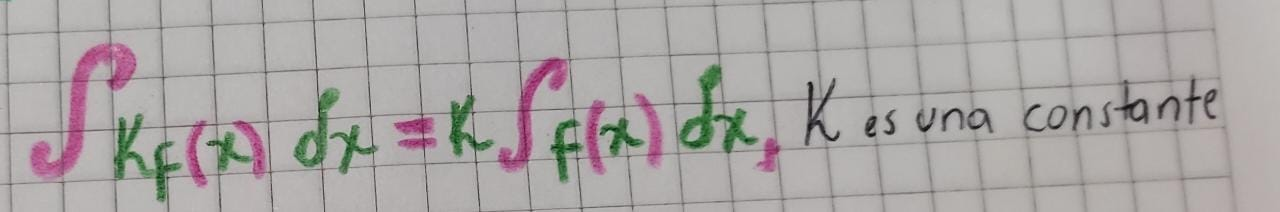 ∫ Kf(x) dx = K ∫ f(x) dx, K es una constante